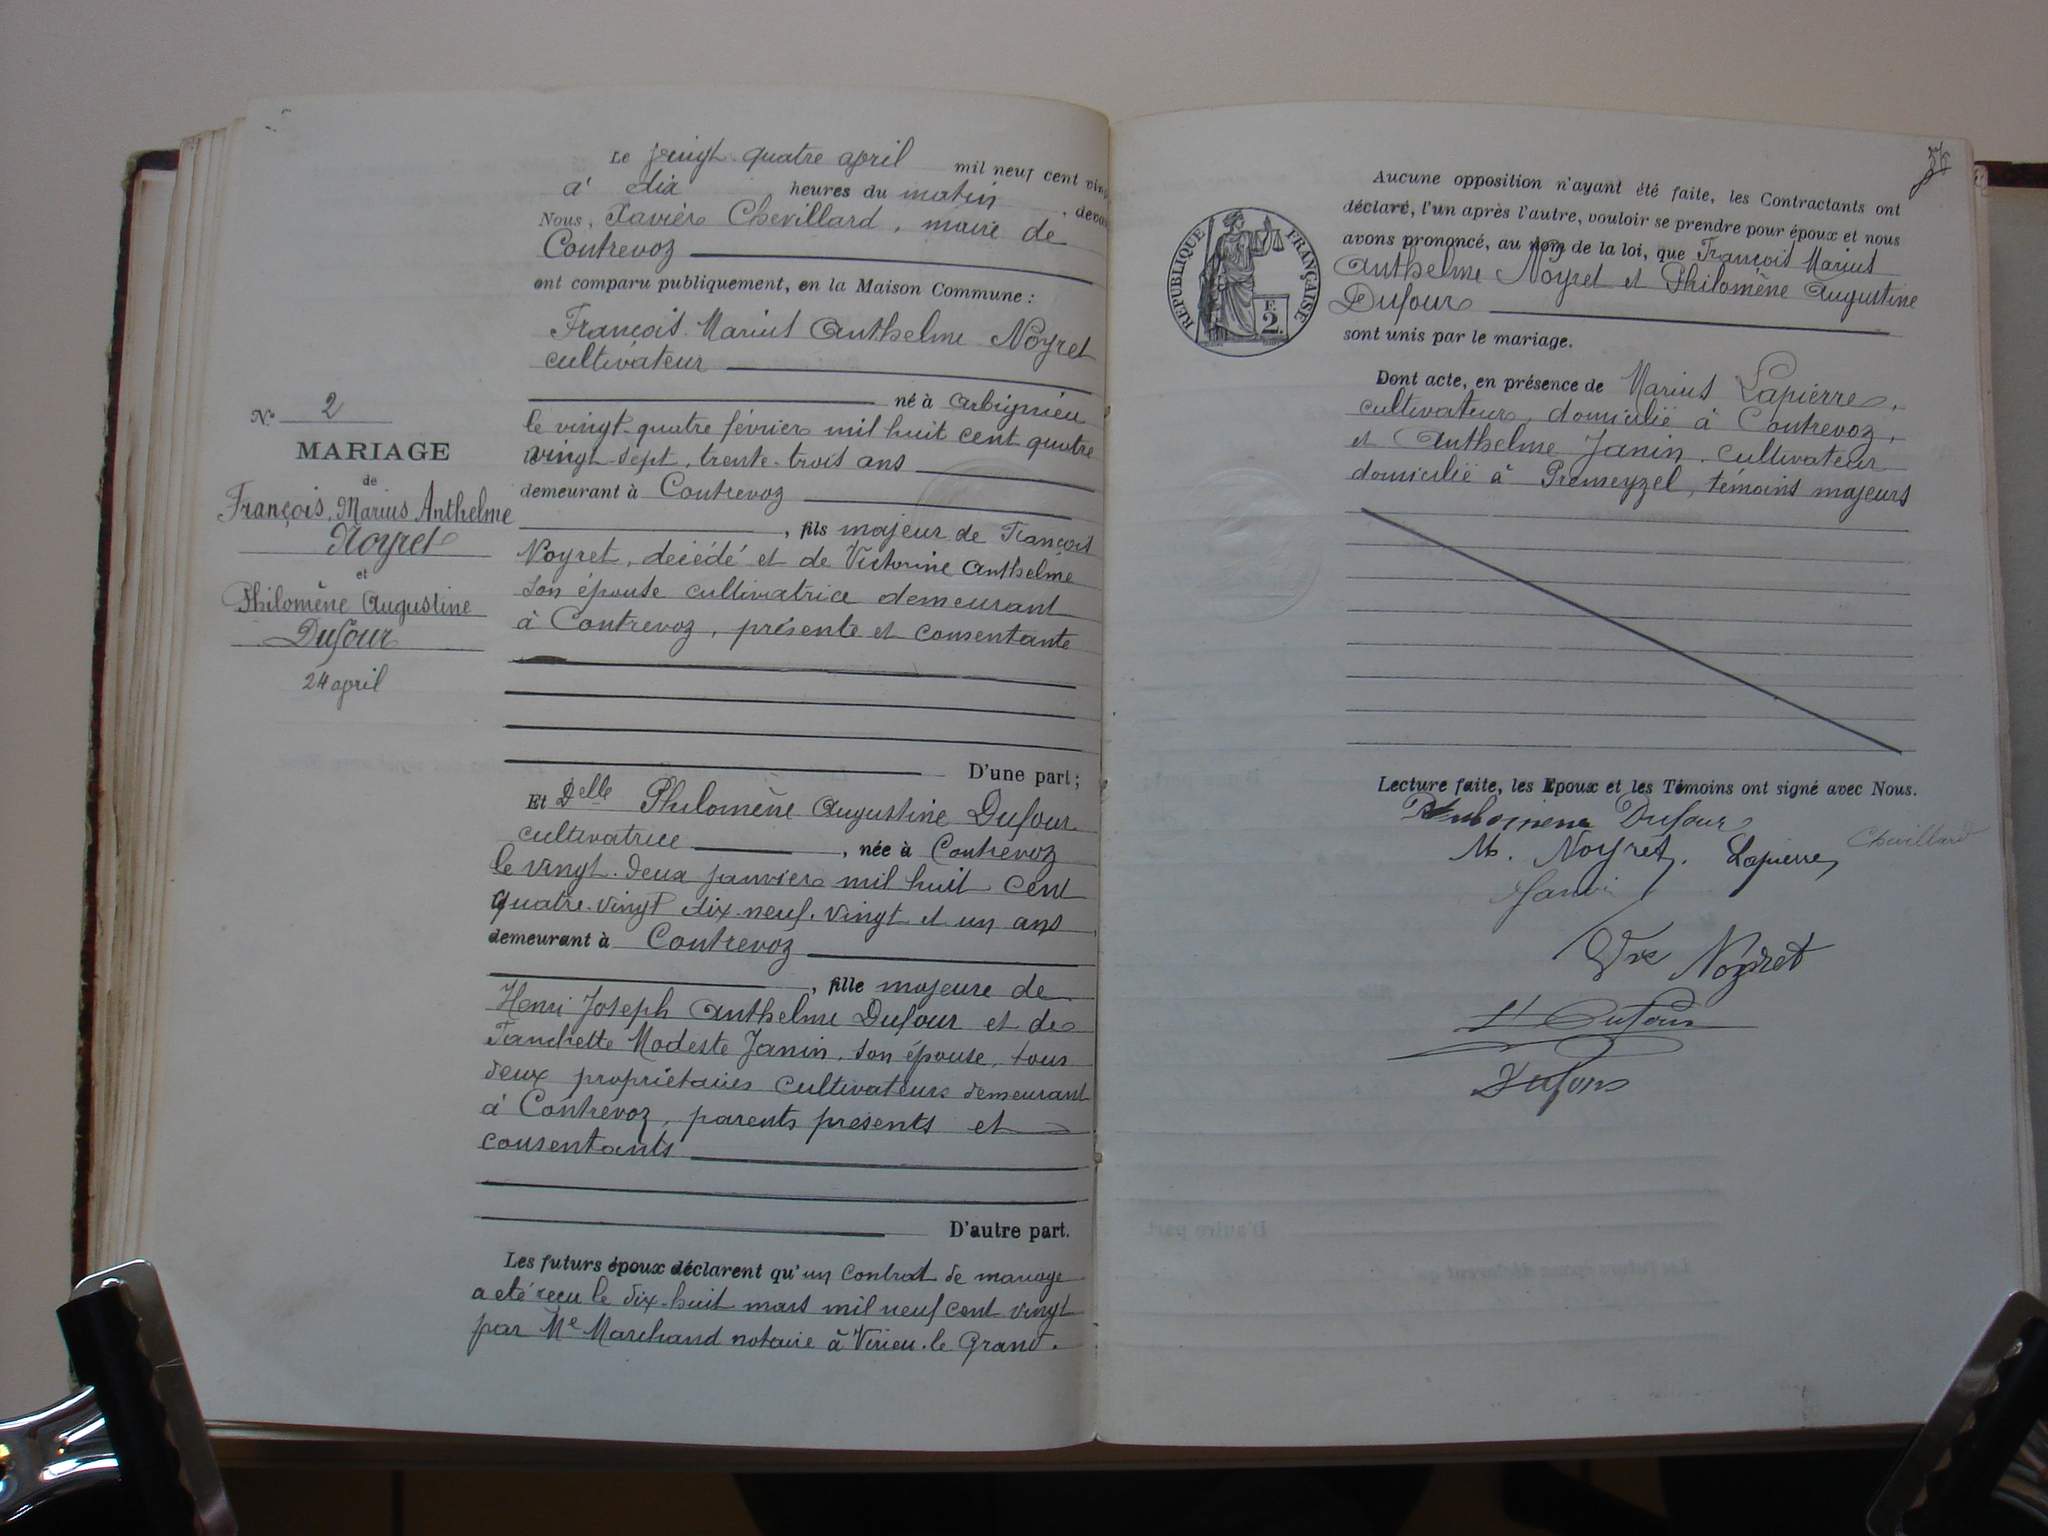 Le vingt quatre april mil neuf cent vingt
à dix heures du matin, devant
Nous, Xavier Chevillard, maire de
Contrevoz
ont comparu publiquement, en la Maison Commune :
François Marius Anthelme Noyret
cultivateur
né à Arbignieu
le vingt-quatre février mil huit cent quatre
vingt-sept, trente-trois ans
demeurant à Contrevoz
, fils majeur de François
Noyret, décédé et de Victorine Anthelme
son épouse cultivatrice demeurant
à Contrevoz, présente et consentante
D'une part ;
Et Delle Philomène Augustine Dufour
cultivatrice, née à Contrevoz
le vingt-deux janvier mil huit cent
quatre-vingt dix-neuf, vingt et un ans
demeurant à Contrevoz
, fille majeure de
Henri Joseph Anthelme Dufour et de
Franchette Modeste Janin, son épouse, tous
deux propriétaires cultivateurs demeurant
à Contrevoz, parents présents et
consentants
D'autre part.
Les futurs époux déclarent qu'un contrat de mariage
a été reçu le dix-huit mars mil neuf cent vingt
par Me Marchand notaire à Virieu-le Grand.
N° 2
MARIAGE
de
François, Marius Anthelme
Noyret
et
Philomène Augustine
Dufour
24 april
RÉPUBLIQUE FRANÇAISE
F.
2.
Aucune opposition n'ayant été faite, les Contractants ont
déclaré, l'un après l'autre, vouloir se prendre pour époux et nous
avons prononcé, au nom de la loi, que François Marius
Anthelme Noyret et Philomène Augustine
Dufour
sont unis par le mariage.
Dont acte, en présence de Marius Lapierre,
cultivateur, domicilié à Contrevoz,
et Anthelme Janin, cultivateur
domicilié à Premeyzel, témoins majeurs
Lecture faite, les Epoux et les Témoins ont signé avec Nous.
Philomène Dufour
M. Noyret. Lapierre Chevillard
Janin
Vve Noyret
Dufour
Dufour